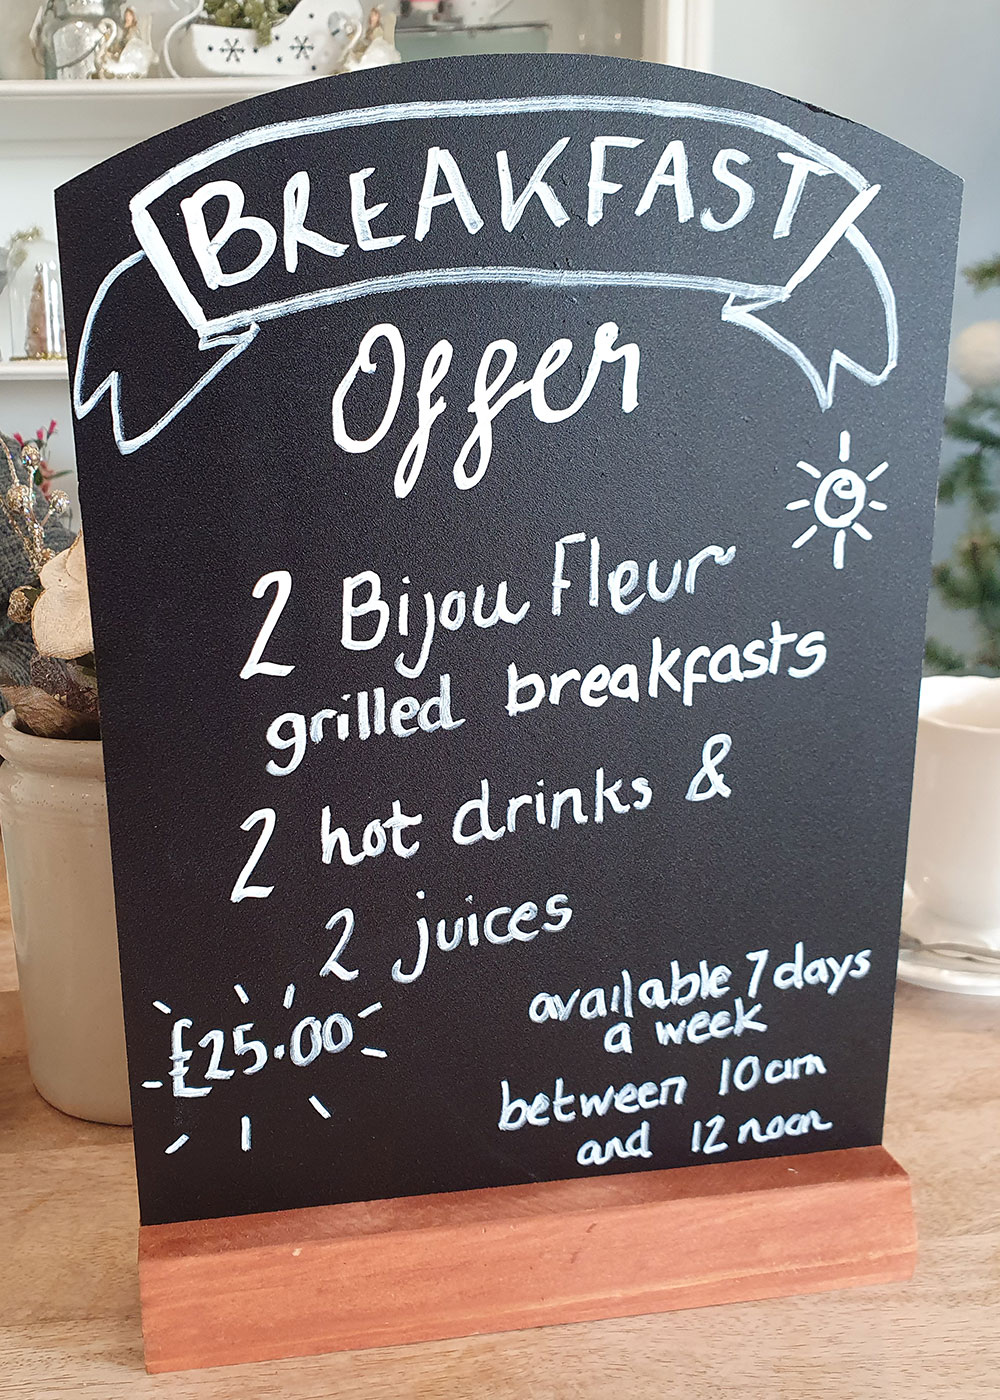 BREAKFAST
Offer
2 Bijou Fleur
grilled breakfasts
2 hot drinks &
2 juices
£25.00
available 7 days
a week
between 10am
and 12 noon